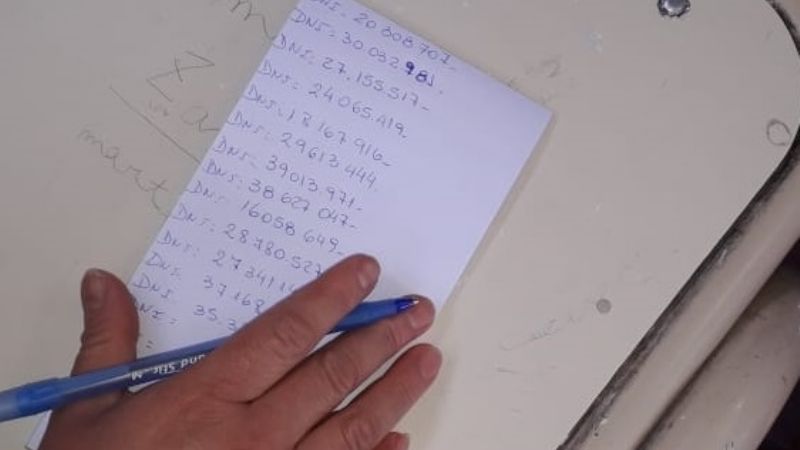 DNI: 20 308 701-
DNI: 30.032 981-
DNI: 27.155.517-
DNI: 24 065.419-
DNI: 18 167 916-
DNI: 29613.444
DNI: 39013 971-
DNI: 38 627 047-
DNI: 16058 649-
DNI: 28 780.527
DNI: 27341
DNI: 37168
DNI: 35.3
mart